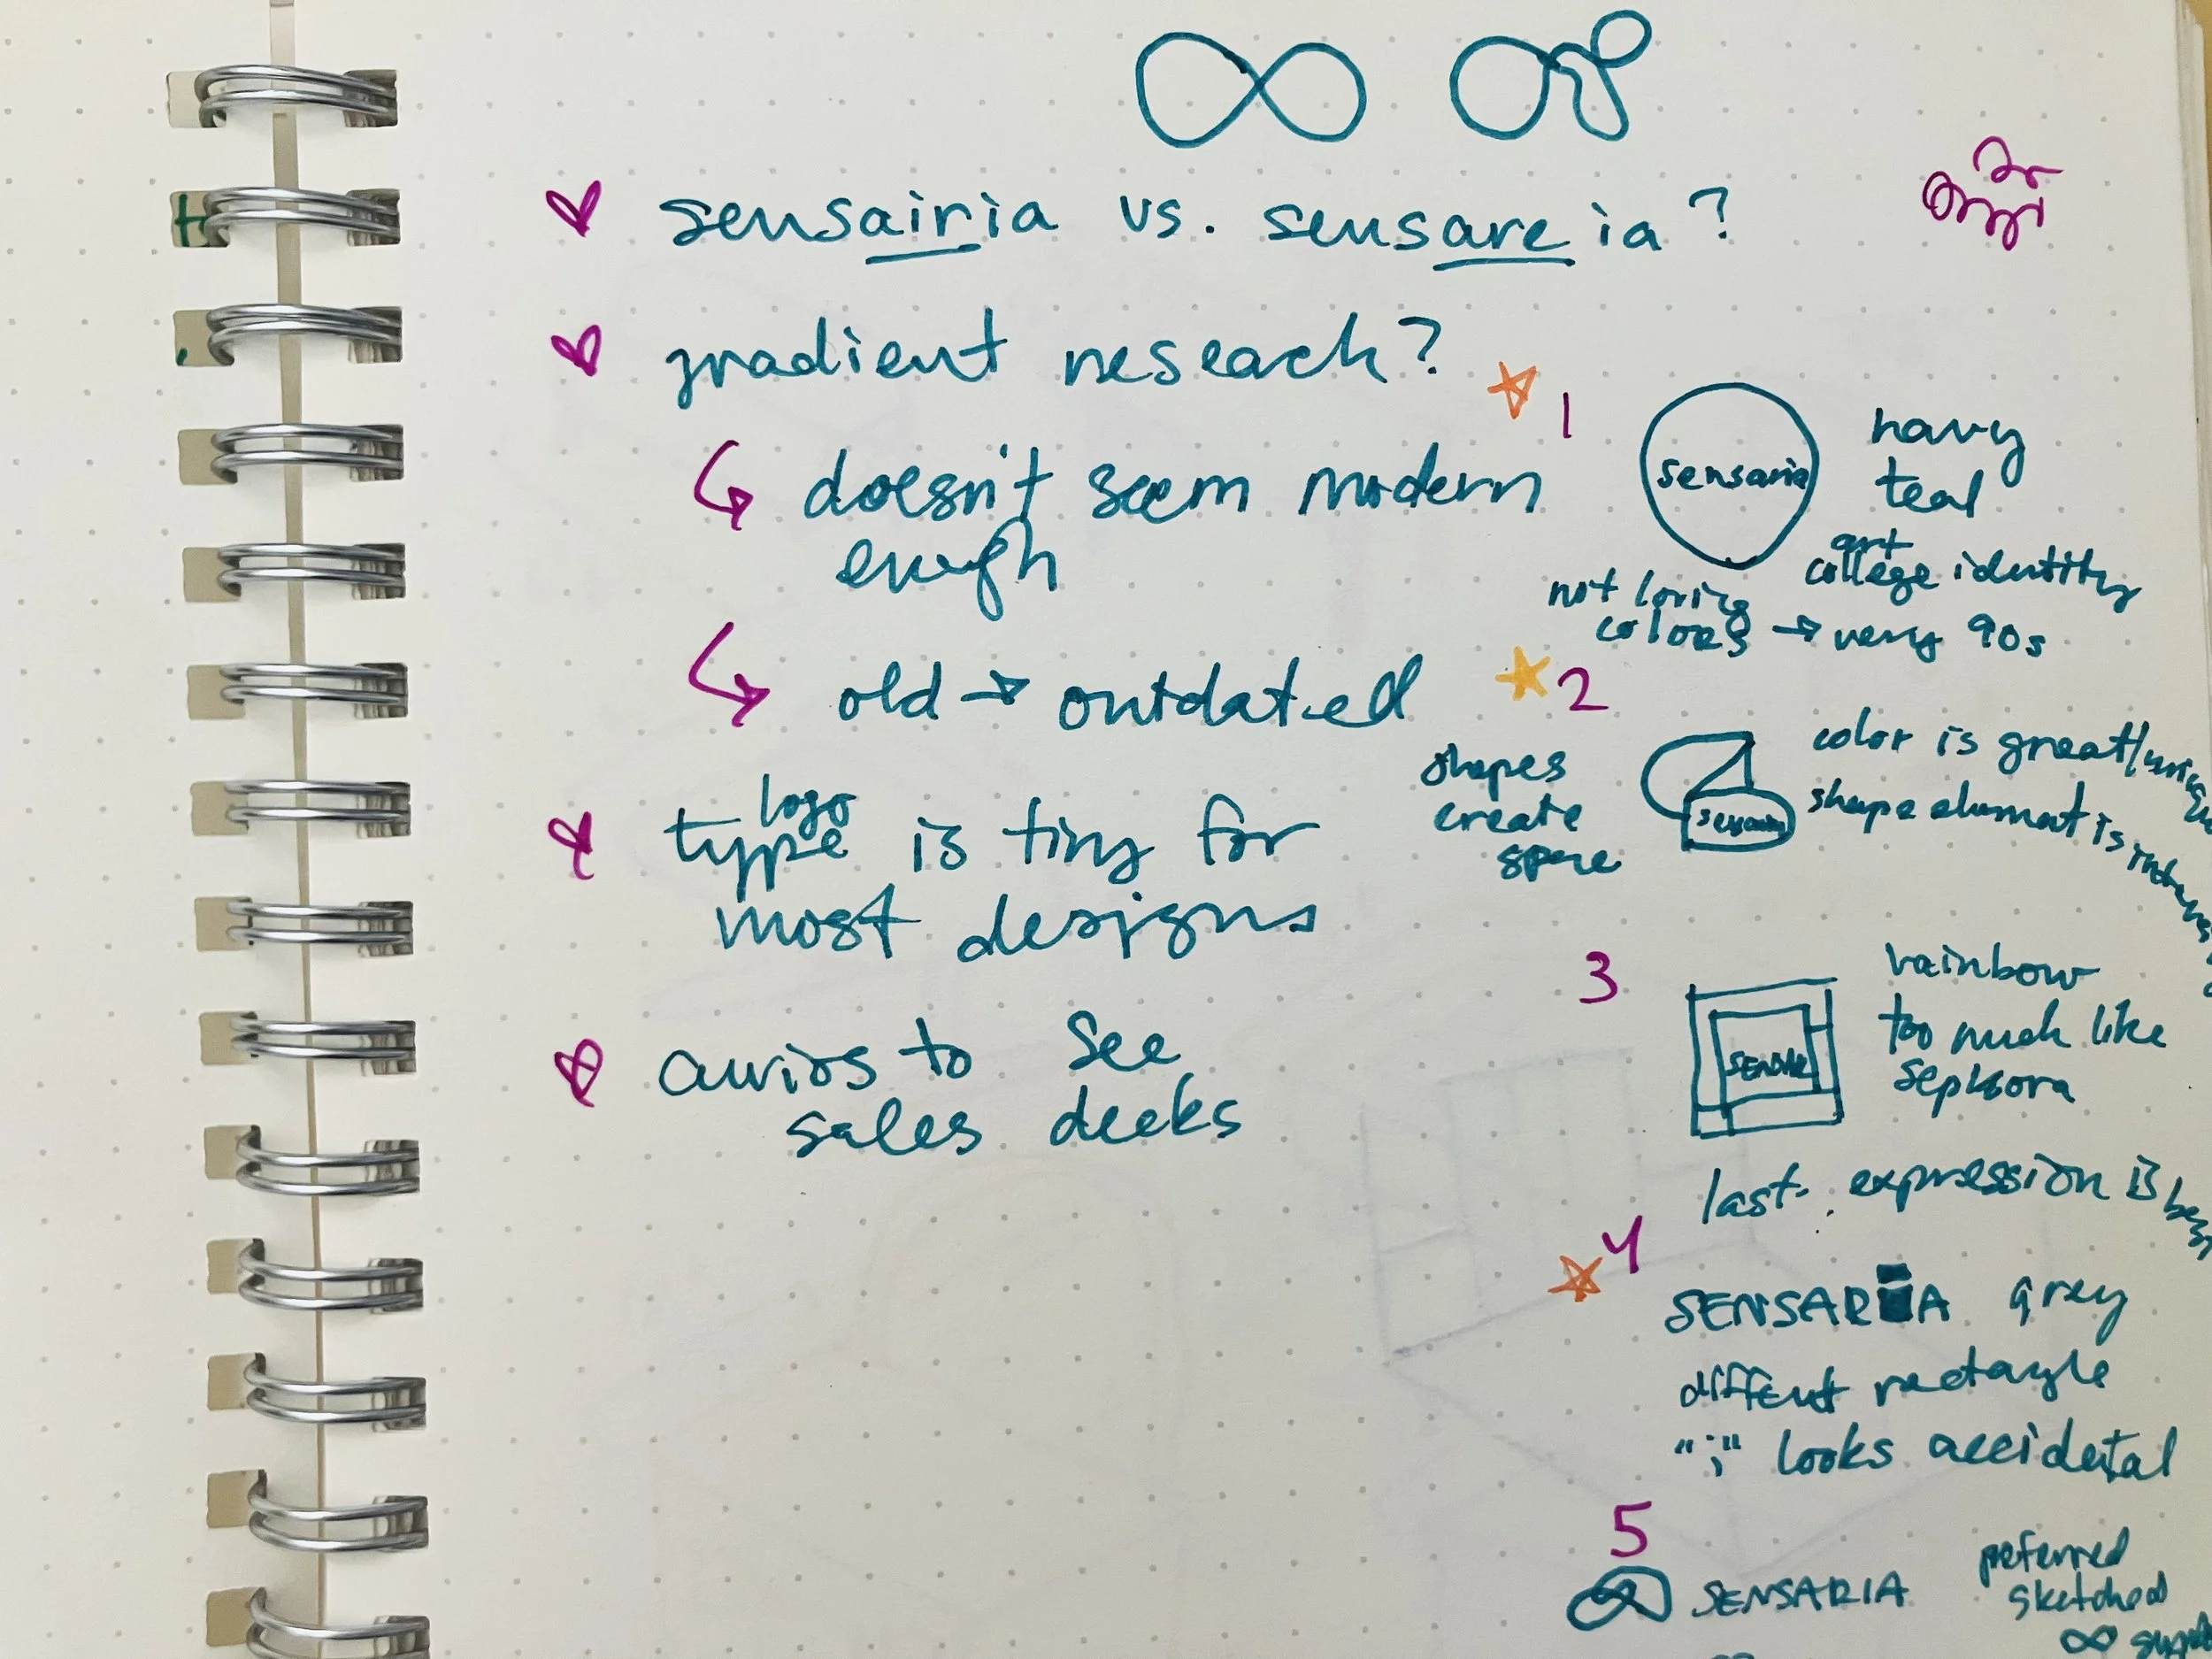 sensairia vs. sensareia?
gradient reseach?
doesn't seem modern
enough
old → outdated
logo
type is tiny for
most designs
curios to see
sales decks
1
sensaria
navy
teal
art
college identity
not loving
colors → very 90s
2
shapes
create
space
color is great/
shape element is
3
SENSAR
rainbow
too much like
sephora
last expression is
4
SENSARIA grey
diffent rectangle
"i" looks accidental
5
SENSARIA
preferred
sketched
∞